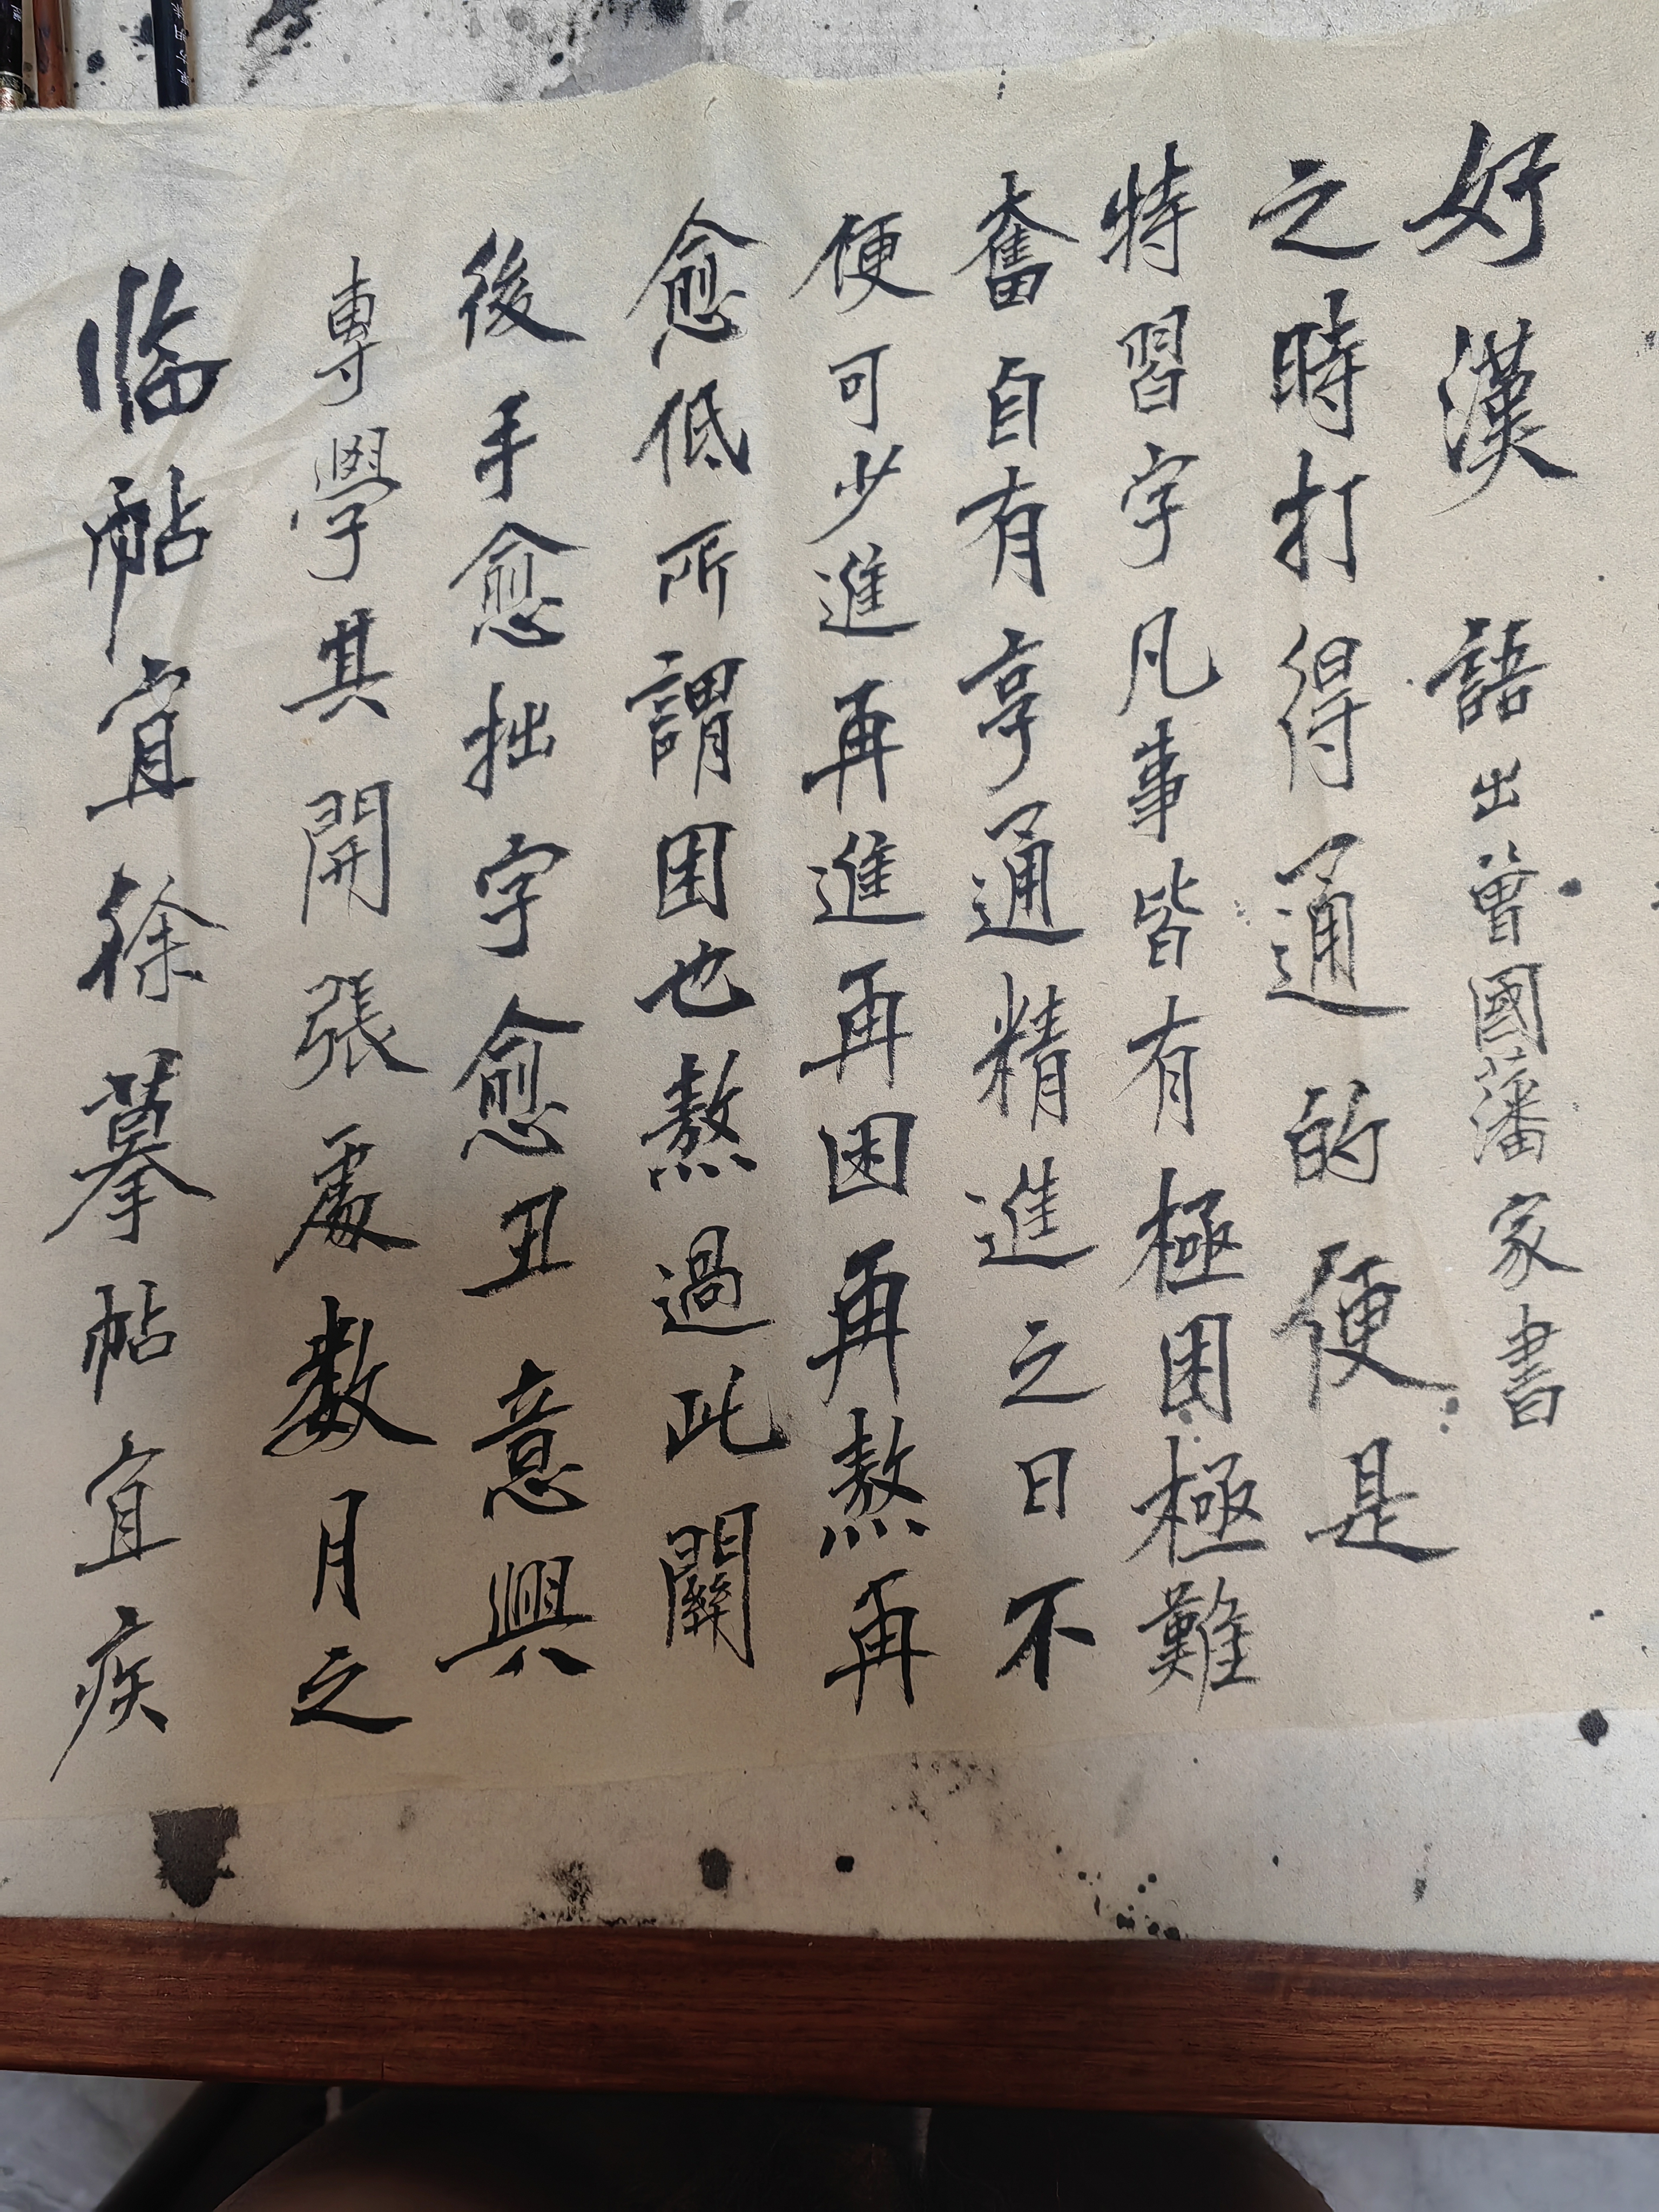 好漢 語出曾國藩家書
之時打得通的便是
特習字凡事皆有極困極難
奮自有享通精進之日不
便可少進再進再困再熬再
愈低所謂困也熬過此關
後手愈拙字愈丑意興
專學其開張處數月之
临帖宜徐摹帖宜疾